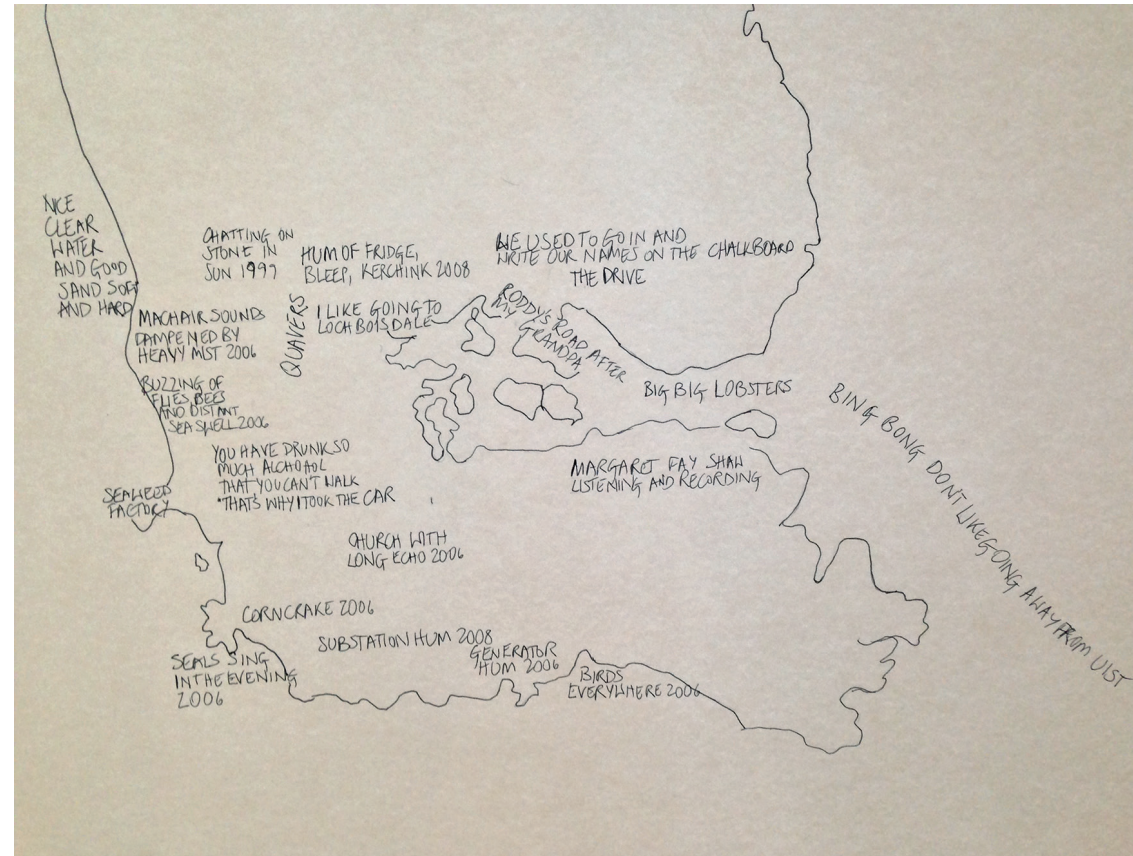 NICE
CLEAR
WATER
AND GOOD
SAND SOFT
AND HARD
CHATTING ON
STONE IN
SUN 1997
HUM OF FRIDGE,
BLEEP, KERCHINK 2008
WE USED TO GO IN AND
WRITE OUR NAMES ON THE CHALKBOARD
THE DRIVE
MACHAIR SOUNDS
DAMPENED BY
HEAVY MIST 2006
QUAVERS
I LIKE GOING TO
LOCHBOISDALE
RODDY'S ROAD AFTER
MY GRANDPA
BUZZING OF
FLIES, BEES
AND DISTANT
SEA SWELL 2006
BIG BIG LOBSTERS
BING BONG DONT LIKE GOING AWAY FROM UIST
YOU HAVE DRUNK SO
MUCH ALCHOAOL
THAT YOU CAN'T WALK
"THATS WHY I TOOK THE CAR
MARGARET FAY SHAW
LISTENING AND RECORDING
SEAWEED
FACTORY
CHURCH WITH
LONG ECHO 2006
CORNCRAKE 2006
SUBSTATION HUM 2008
GENERATOR
HUM 2006
SEALS SING
IN THE EVENING
2006
BIRDS
EVERYWHERE 2006